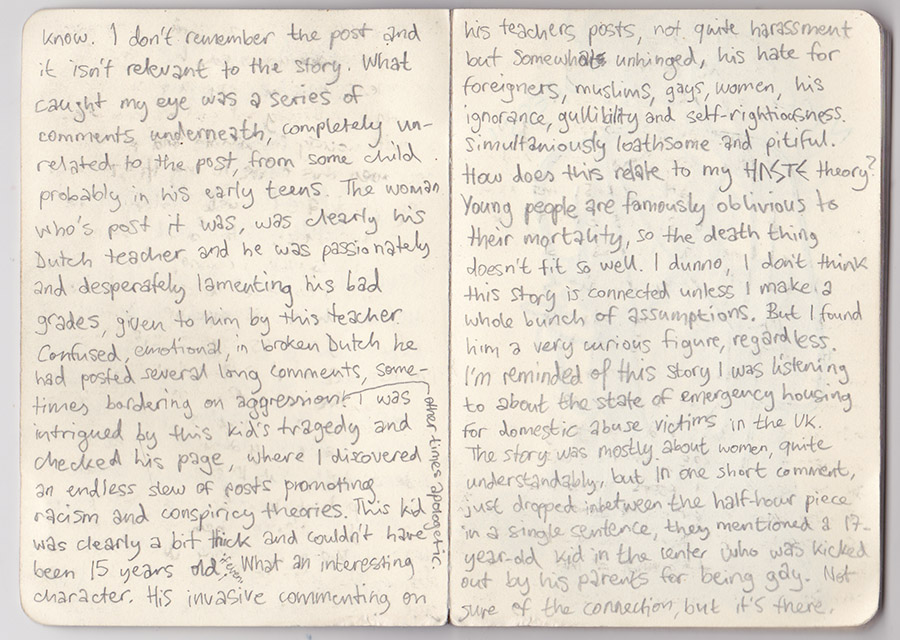 know. I don't remember the post and
it isn't relevant to the story. What
caught my eye was a series of
comments underneath, completely un-
related to the post, from some child
probably in his early teens. The woman
who's post it was, was clearly his
Dutch teacher and he was passionately
and desperately lamenting his bad
grades, given to him by this teacher.
Confused, emotional, in broken Dutch he
had posted several long comments, some-
times bordering on aggression. I was
intrigued by this kid's tragedy and
checked his page, where I discovered
an endless slew of posts promoting
racism and conspiricy theories. This kid
was clearly a bit thick and couldn't have
been 15 years old even. What an interesting
character. His invasive commenting on
other times apologetic.
his teachers posts, not quite harassment
but somewhat unhinged, his hate for
foreigners, muslims, gays, women, his
ignorance, gullibility and self-rightiousness.
Simultaniously loathsome and pitiful.
How does this relate to my theory?
Young people are famously oblivious to
their mortality, so the death thing
doesn't fit so well. I dunno, I don't think
this story is connected unless I make a
whole bunch of assumptions. But I found
him a very curious figure, regardless.
I'm reminded of this story I was listening
to about the state of emergency housing
for domestic abuse victims in the UK.
The story was mostly about women, quite
understandably, but in one short comment,
just dropped inbetween the half-hour piece
in a single sentence, they mentioned a 17-
year-old kid in the center who was kicked
out by his parents for being gay. Not
sure of the connection, but it's there.